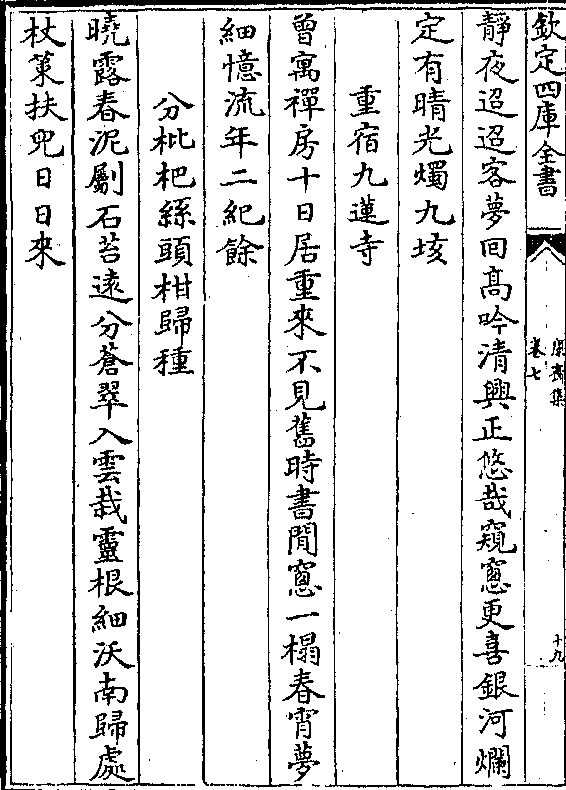 欽定四庫全書
康齋集
卷七
十九
靜夜迢迢客夢回高吟清興正悠哉窺窻更喜銀河爛
定有晴光燭九垓
重宿九蓮寺
曾寓禪房十日居重來不見舊時書閒窻一榻春宵夢
細憶流年二紀餘
分枇杷綠頭柑歸種
曉露春泥劚石苔遠分蒼翠入雲栽靈根細沃南歸處
杖策扶兜日日來